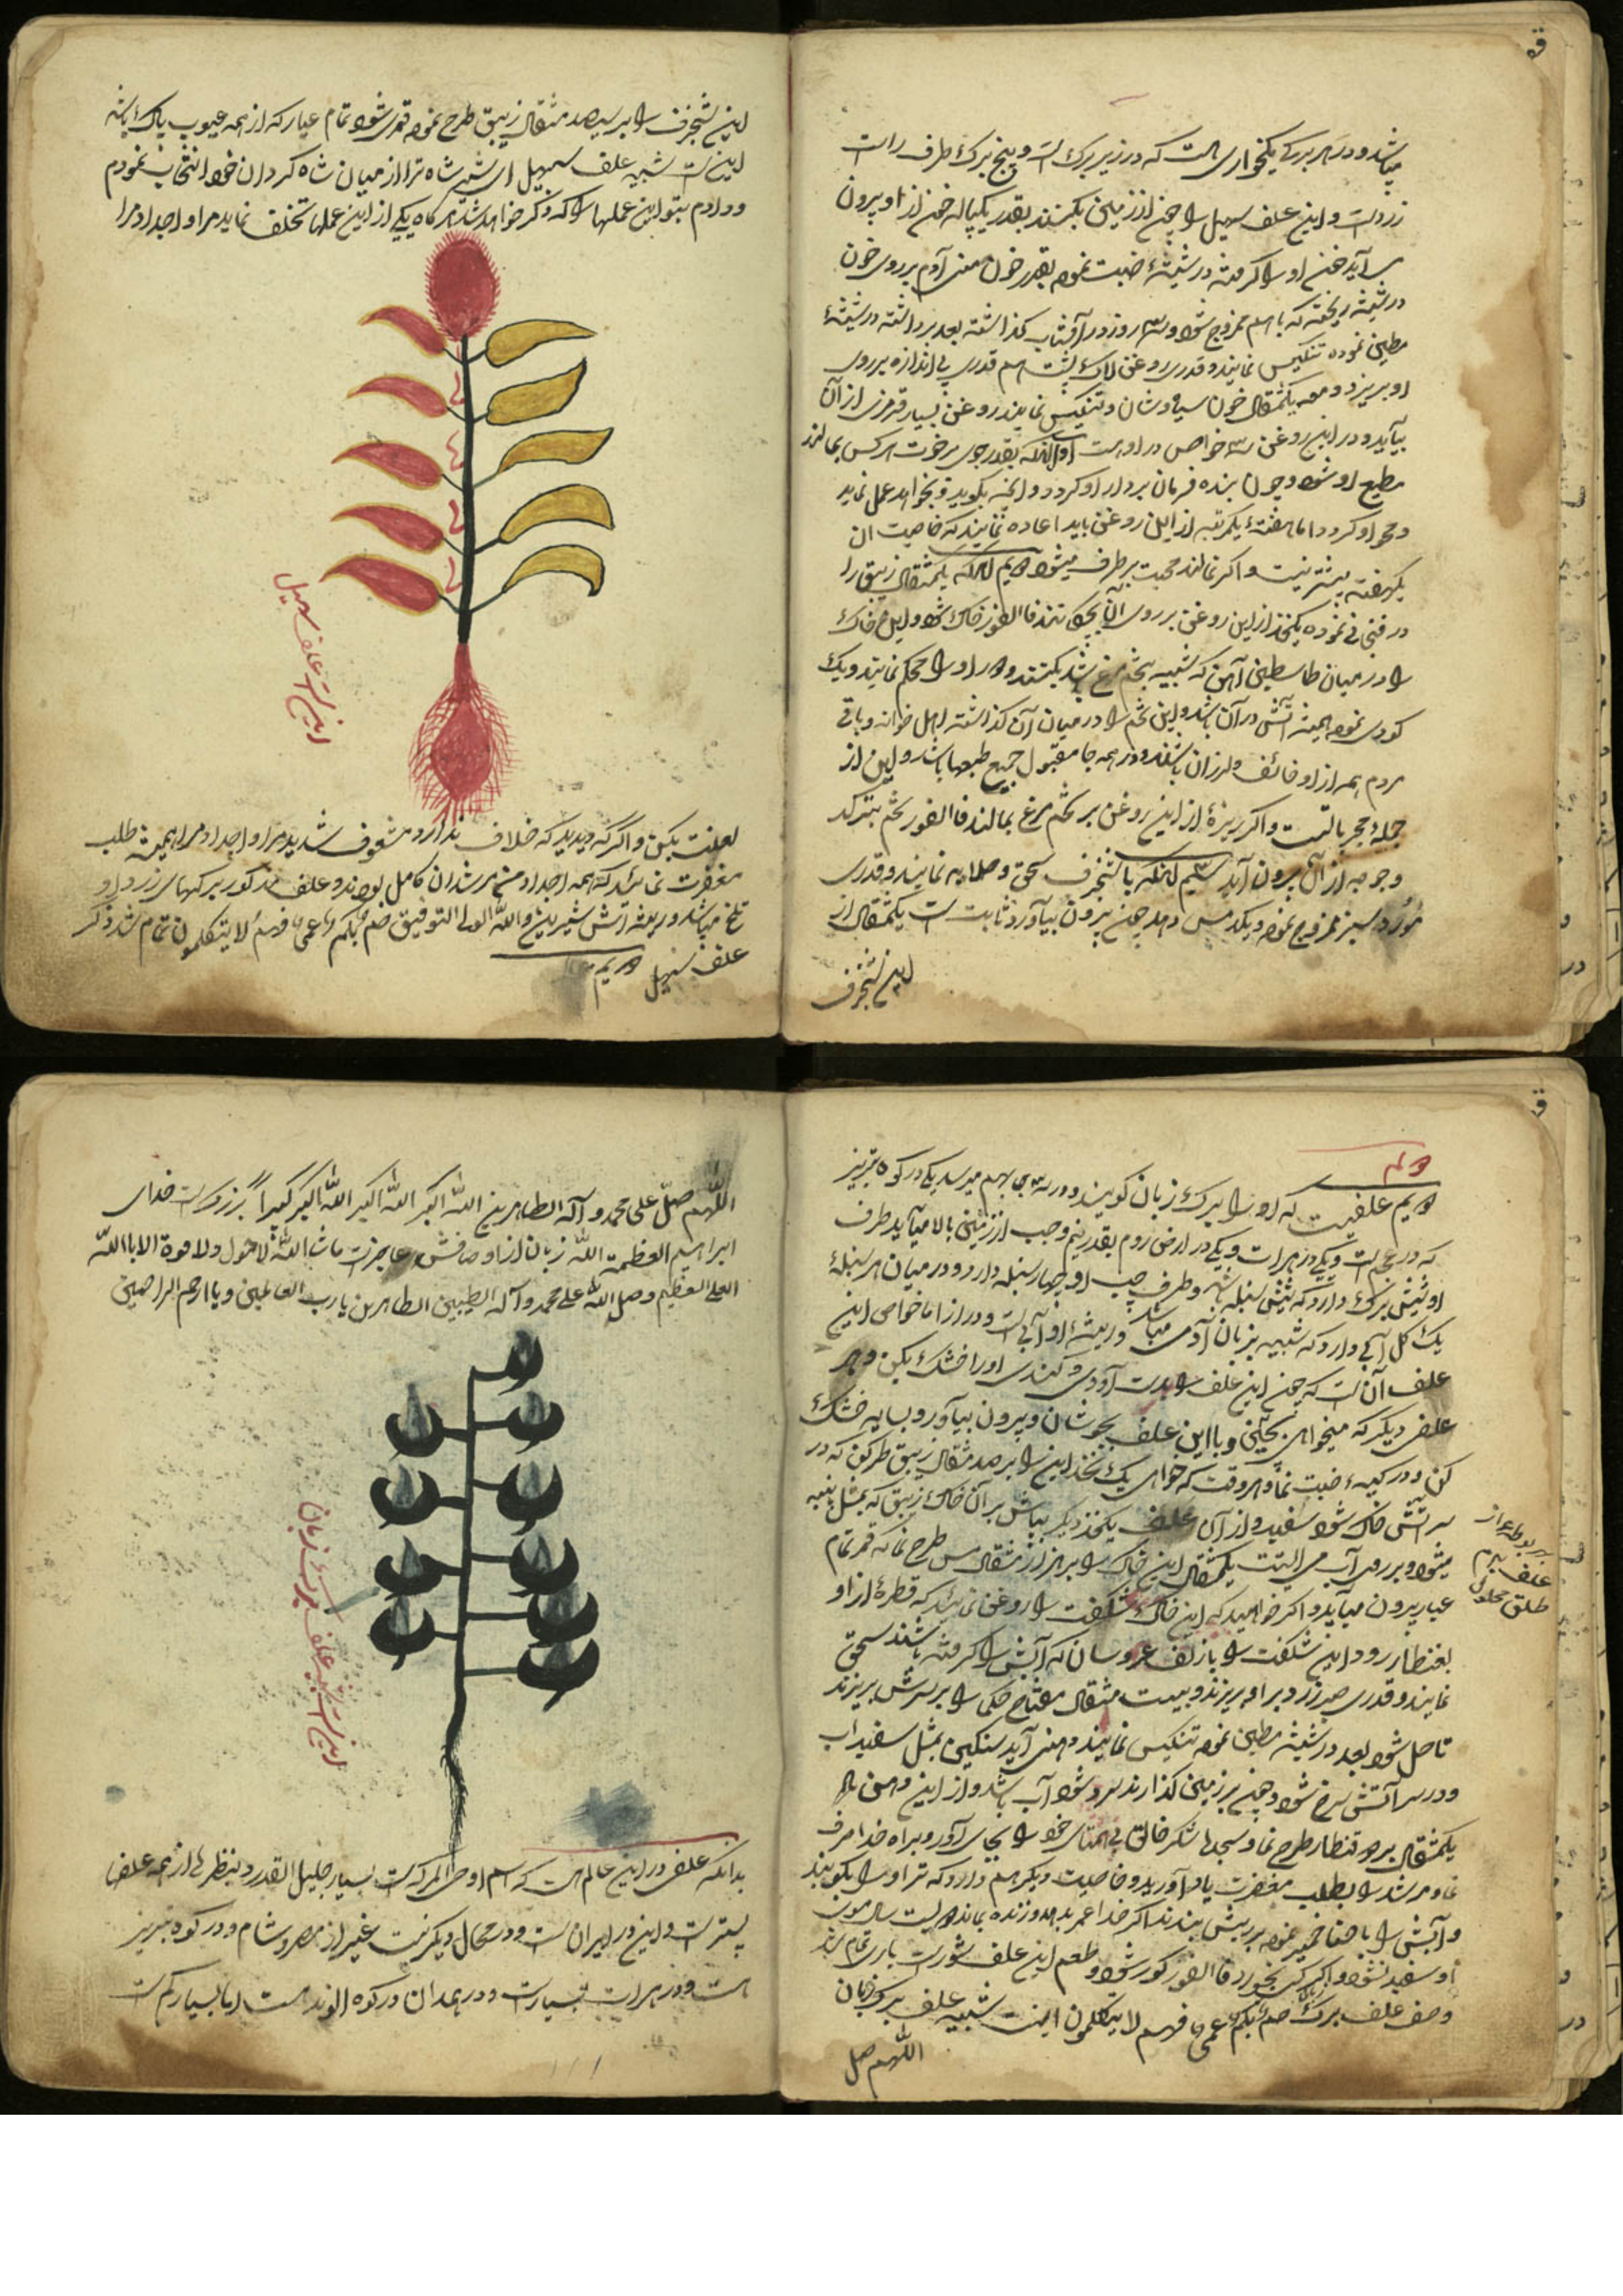 میباشد و در هر برکے یکخواری هست که در زیر برک است و پنج برک طرف راست
زرد است و این علف سهیل را چون از زمین بکنند بقدر یکپیاله خون از او بیرون
می آید خون او را گرفته در شیشهٔ ضبت نموده بقدر خون معنی آدم بر روی خون
در شیشه ریخته که باهم ممزوج شود و سه روز در آفتاب گذاشته بعد برداشته در شیشهٔ
مطین نموده تنکیس نمایند و قدری روغن لاک پشت هم قدری پی اندازه بر روی
او بریزد و معه یکمثقال خون سیاوشان و تنکیس نمایند روغن بسیار قرمزی از آن
بیآید و در این روغن سه خواص در او هست اول آنکه بقدر جوی بر رخت هر کس بمالند
مطیع او شود و چون بنده فرمان بردار او کردد و آنچه بکوید و بخواهد عمل نماید
و محو او کردد اما هفتهٔ یکمرتبه از این روغن باید اعاده نمایند که خاصیت آن
یکهفته بیشتر نیست و اکر نمالند محبت بر طرف میشود دویم آنکه یکمثقال زیبق را
در فنجانی نموده یکنخد از این روغن بر روی آن بچکانند فاالفور خاک شود و این خاک
را در میان طاسطین آهن که شبیه بتخم مرغ باشد بکنند و در او را محکم نمایند و یک
کودی نموده همیشه آتش در آن باشد و این تخم را در میان آن گذاشته اهل خوانه و باقی
مردم همه از او خائف و لرزان باشند و در همه جا مقبول جمیع طبعها باشد و این از
جملهٔ مجرباتست و اکر ریزهٔ از این روغن بر تخم مرغ بمالند فاالفور تخم بترکد
و جوجه از آن بیرون آید سیم آنکه با شنجرف سحق و صلایه نمایند و قدری
مورد سبز ممزوج نموده و یکدمس دهد چون بیرون بیآورد ثابت است یکمثقال از
این شنجرف
این شنجرف را بر سیصد مثقال زیبق طرح نموده قمر شود تمام عیار که از همه عیوب پاک باشد
اینست شبیه علف سهیل ای شیر شاه ترا از میان شاه کردان خود انتخاب نمودم
و دادم بتو این عملها را که ذکر خواهد شد هر کاه یکی از این عملها تخلف نماید مرا و اجداد مرا
اینست علف سهیل
لعنت بکن و اگر که دیدید که خلاف ندارد و مشعوف شدید مرا و اجداد مرا همیشه طلب
مغفرت نمائید که همه اجداد من مرشدان کامل بودند و علف مذکور برکهای زرد او
تلخ میباشد و ریشه اتش شیرین و اللّه الهدا التوفیق صم بکم عمی فهم لا یتکلمون تمام شد ذکر
علف سهیل دویم
دویم علفیست که او را برک زبان کویند و در سه جا بهم میرسد یکی در کوه تبریز
که در عجم است و یکی در هرات و یکی در ارض روم بقدر نیم وجب از زمین بالا میآید طرف
او شش برک دارد که شش سنبله باشد و طرف چپ او چهار سنبله دارد و در میان هر سنبلهٔ
یک کل آبی دارد که شبیه بزبان آدمی میباشد و ریشهٔ او آبیست و دراز اما خواص این
علف آن است که چون این علف را بدست آوردی و کندی او را خشک بکن و هر
علف دیکر که میخواهی بچین و با این علف بجوشان و بیرون بیآور و بسایه خشک
کن و در کیسهٔ ضبت نما و هر وقت که خواهی یک نخد این را بر صد مثقال زیبق طرح کن که در
سر آتش خاک شود سفید و از آن علف یکنخد دیکر بپاش بر آن خاک زیبق که بمثل پنبه
میشود و بر روی آب می ایستد یکمثقال این خاک را بر هزار مثقال مس طرح نما که قمر تمام
عیار بیرون میآید و اکر خواهید که این خاک شکفت را روغن نمائید که قطرهٔ از او
بقنطار رود این شکفت را با زلف عروسان که آتش را گرفته باشند سحق
نمایند و قدری صبر زرد بر او بریزند و بیست مثقال مفتاح حکما را بر سرش بریزند
تا حل شود بعد در شیشه مطین نموده تنکیس نمایند دهنی آید سنکین بمثل سفیداب
و در سر آتش سرخ شود و چون بر زمین گذارند سرد شود آب باشد و از این دهن را
یکمثقال بر دو قنطار طرح نما و سجدها شکر خالق بی همتای خود را بجای آور و براه خدا صرف
نما و مرشد را بطلب مغفرت یاد آورید و خاصیت دیکر هم دارد که تر او را بکوبند
و آبش را با حنا خمیر نموده بر ریش بندند اکر خدا عمر بدهد و زنده بماند دویست سال موی
او سفید نشود و اکر کسی بخورد فاالفور کور شود و طعم این علف شور است باری تمام شد
وصف علف برک زبان صم بکم عمی فهم لا یتکلمون اینست شبیه علف برک زبان
علف سیم
طلق محلول
اللّهم صل
اللّهم صلّ علی محمد و آله الطاهرین اللّه اکبر اللّه اکبر اللّه اکبر کبیرا بزرک است خدای
ابراهیم العظمة اللّه زبان از اوصافش عاجزت ماشا اللّه لا حول ولا قوة الا با اللّه
العلی العظیم و صل اللّه علی محمد و آله الطیبین الطاهرین یا رب العالمین و یا ارحم الراحمین
اینست شبیه علف برک زبان
بدانکه علفی در این عالم هست که اسم او حی المرک است بسیار جلیل القدر و بنظرها از همه علفها
پستر است و این در ایران است و در محال دیکر نیست غیر از مصر و شام و در کوه تبریز
هست و در هرات بسیار است و در همدان در کوه الوند هست اما بسیار کم است